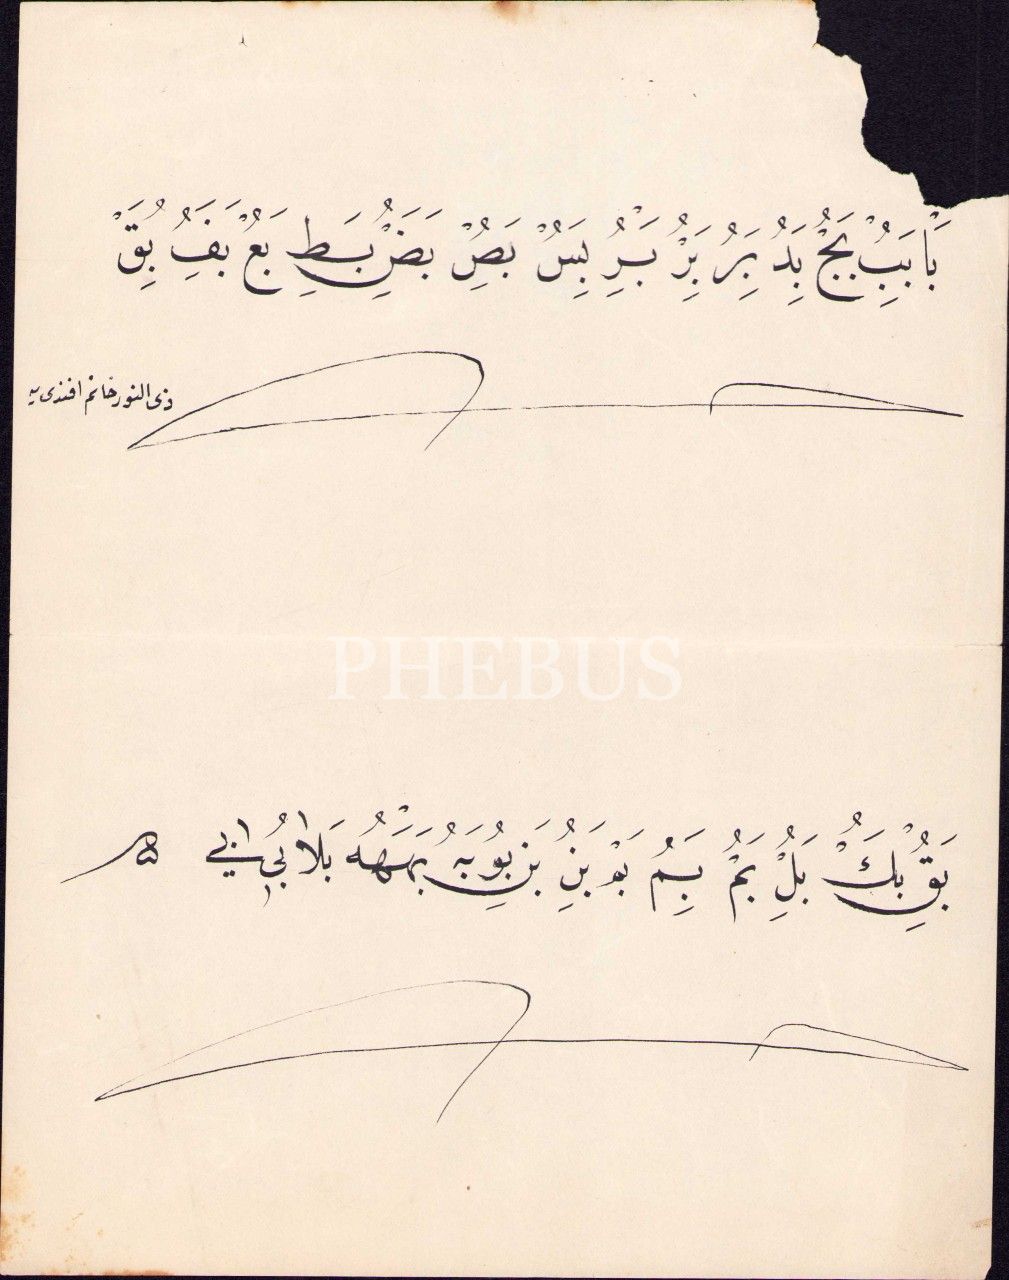 با بب بج بد بر بز بر بس بص بض بط بع بف بق
ذى النور خانم افندى يه
PHEBUS
بق بك بل بم بم بو بن بن بو به بهه بلا بى